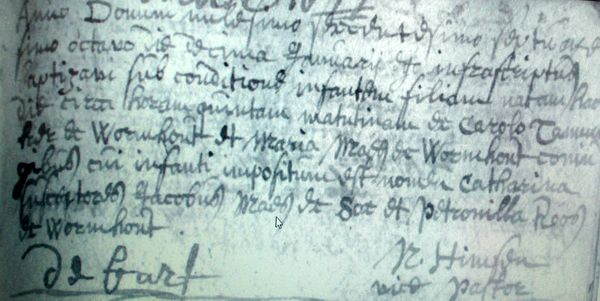 Anno Domini millesimo sexcentesimo septuage
simo octavo die decima januarii ego infrascriptus
baptizavi sub conditione infantem filiam natam hac
die circa horam quintam matutinam de Carolo
de Wormhout et Maria Maes de Wormhout coniu
gibus cui infanti impositum est nomen Catharina
susceptores Jacobus Maes de et Petronilla Roos
de Wormhout
vice pastor